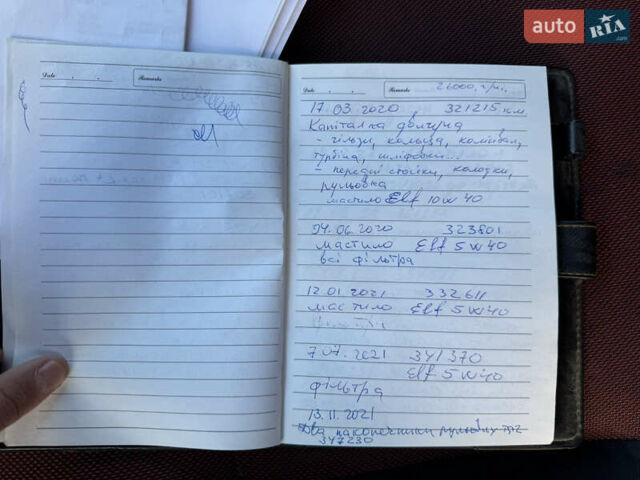 auto RIA .com
Date . . Remarks
Date . . Remarks 26000 грн.
17.03.2020, 321215 км
Капіталка двигуна
- гільзи, кольца, колінвал,
турбіна, шліфовки...
- передні стойки, колодки,
рульовка
мастило Elf 10w40
04.06.2020 323801
мастило Elf 5w40
всі фільтра
12.01.2021 332611
мастило Elf 5w40
7.07.2021 341370
Elf 5w40
фільтра
13.11.2021
Два наконечники рульових
347230